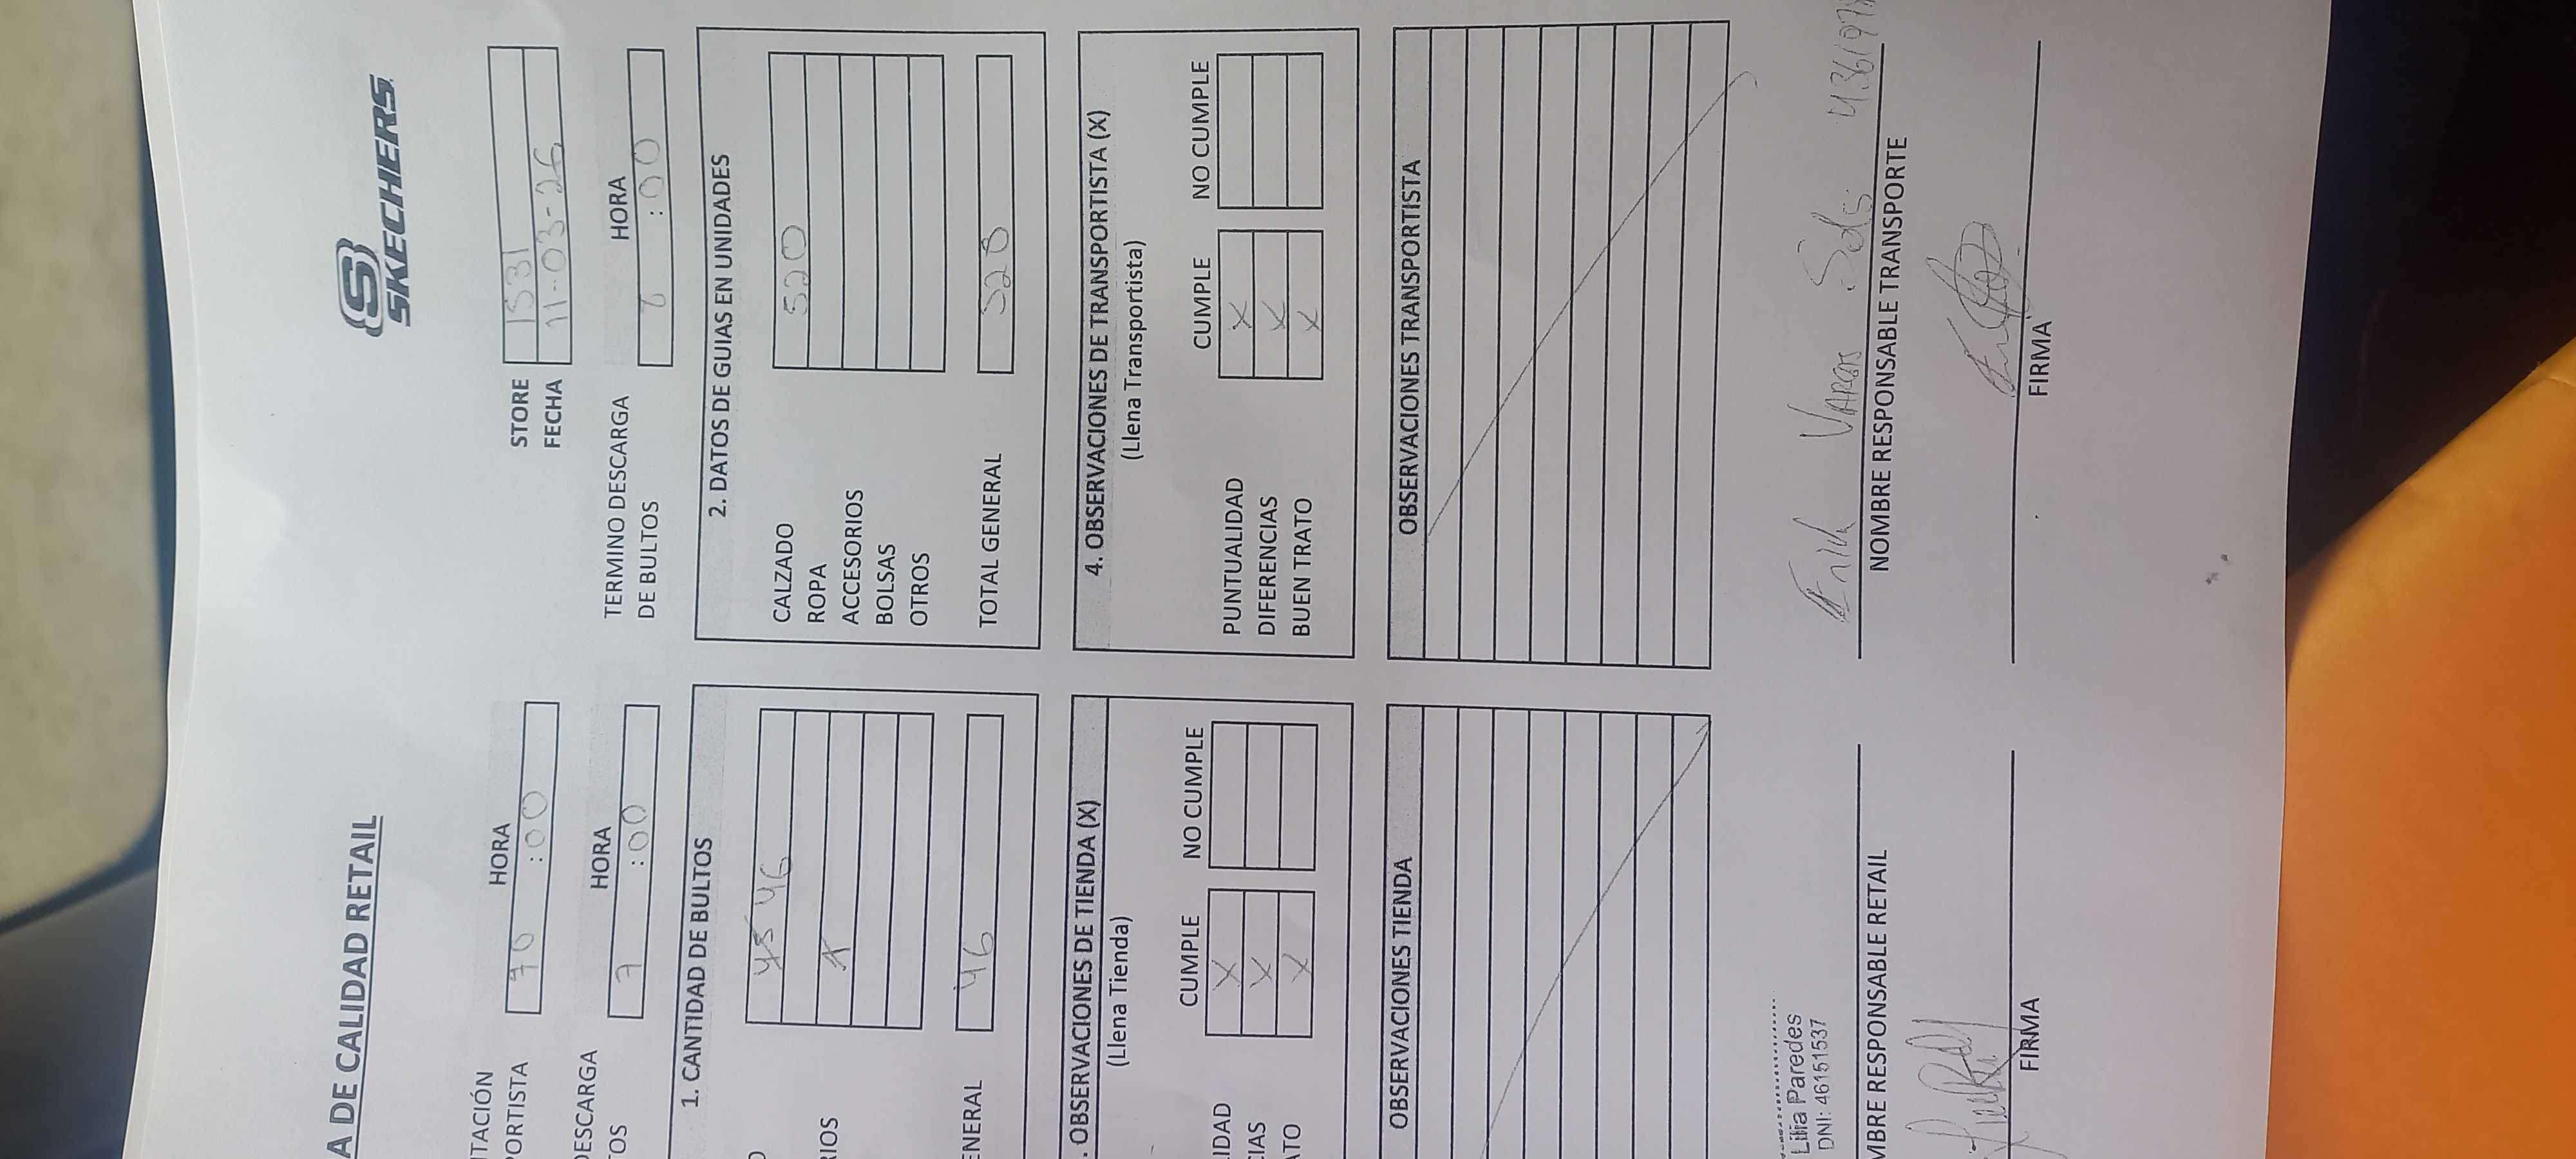 A DE CALIDAD RETAIL
SKECHERS
STORE 1531
FECHA 11-03-26
TACIÓN
PORTISTA
HORA
:00
DESCARGA
TOS
HORA
7 :00
TERMINO DESCARGA
DE BULTOS
HORA
:00
1. CANTIDAD DE BULTOS
45 46
RIOS 1
ENERAL 46
2. DATOS DE GUIAS EN UNIDADES
CALZADO 520
ROPA
ACCESORIOS
BOLSAS
OTROS
TOTAL GENERAL 520
. OBSERVACIONES DE TIENDA (X)
(Llena Tienda)
CUMPLE NO CUMPLE
LIDAD X
CIAS X
ATO X
4. OBSERVACIONES DE TRANSPORTISTA (X)
(Llena Transportista)
CUMPLE NO CUMPLE
PUNTUALIDAD X
DIFERENCIAS X
BUEN TRATO X
OBSERVACIONES TIENDA
OBSERVACIONES TRANSPORTISTA
Lilia Paredes
DNI: 46151537
MBRE RESPONSABLE RETAIL
FIRMA
Erik Vargas
NOMBRE RESPONSABLE TRANSPORTE
FIRMA